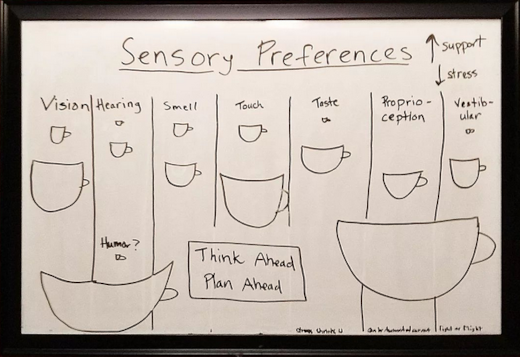 Sensory Preferences
↑ support
↓ stress
Vision
Hearing
Smell
Touch
Taste
Proprio-
ception
Vestib-
ular
Humor?
Think Ahead
Plan Ahead
Fight or Flight